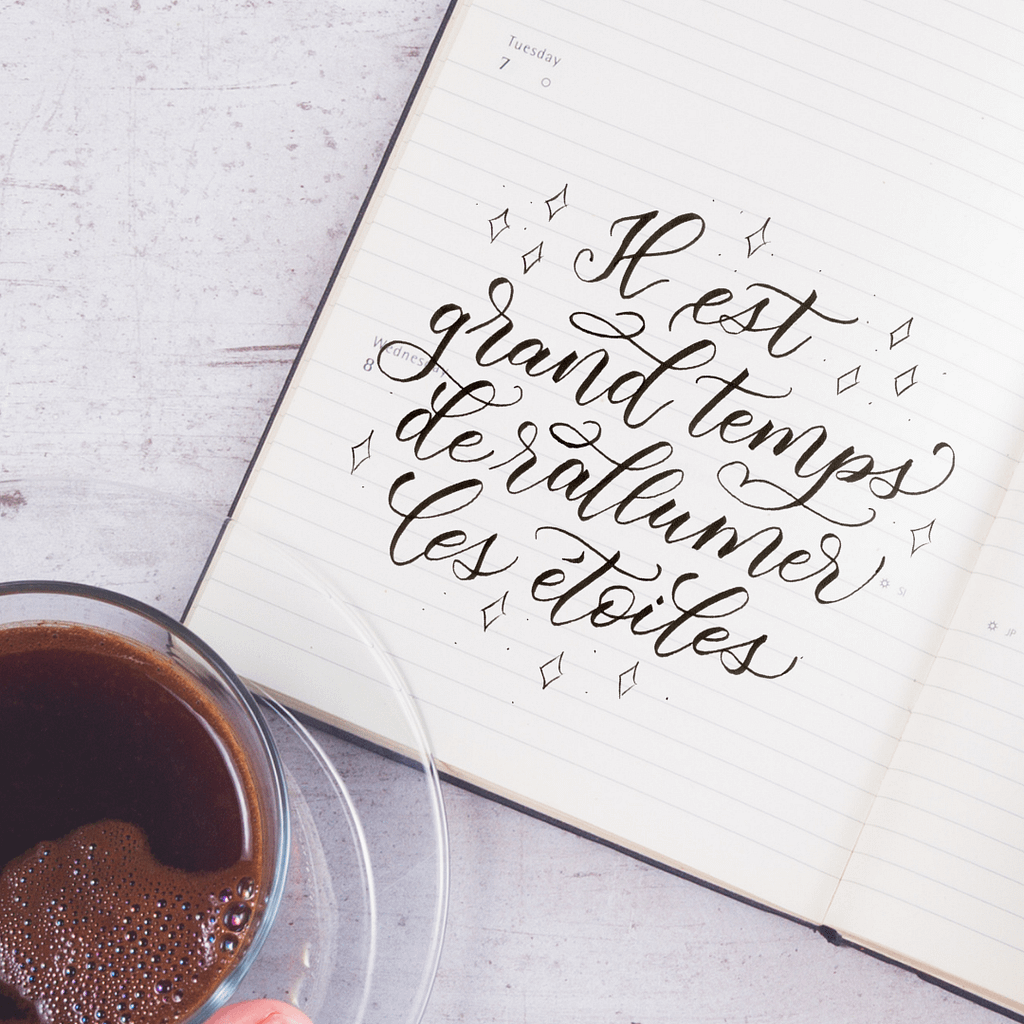 Tuesday
7
Il est
grand temps
Wednesday
8
de rallumer
les étoiles
SI
JP